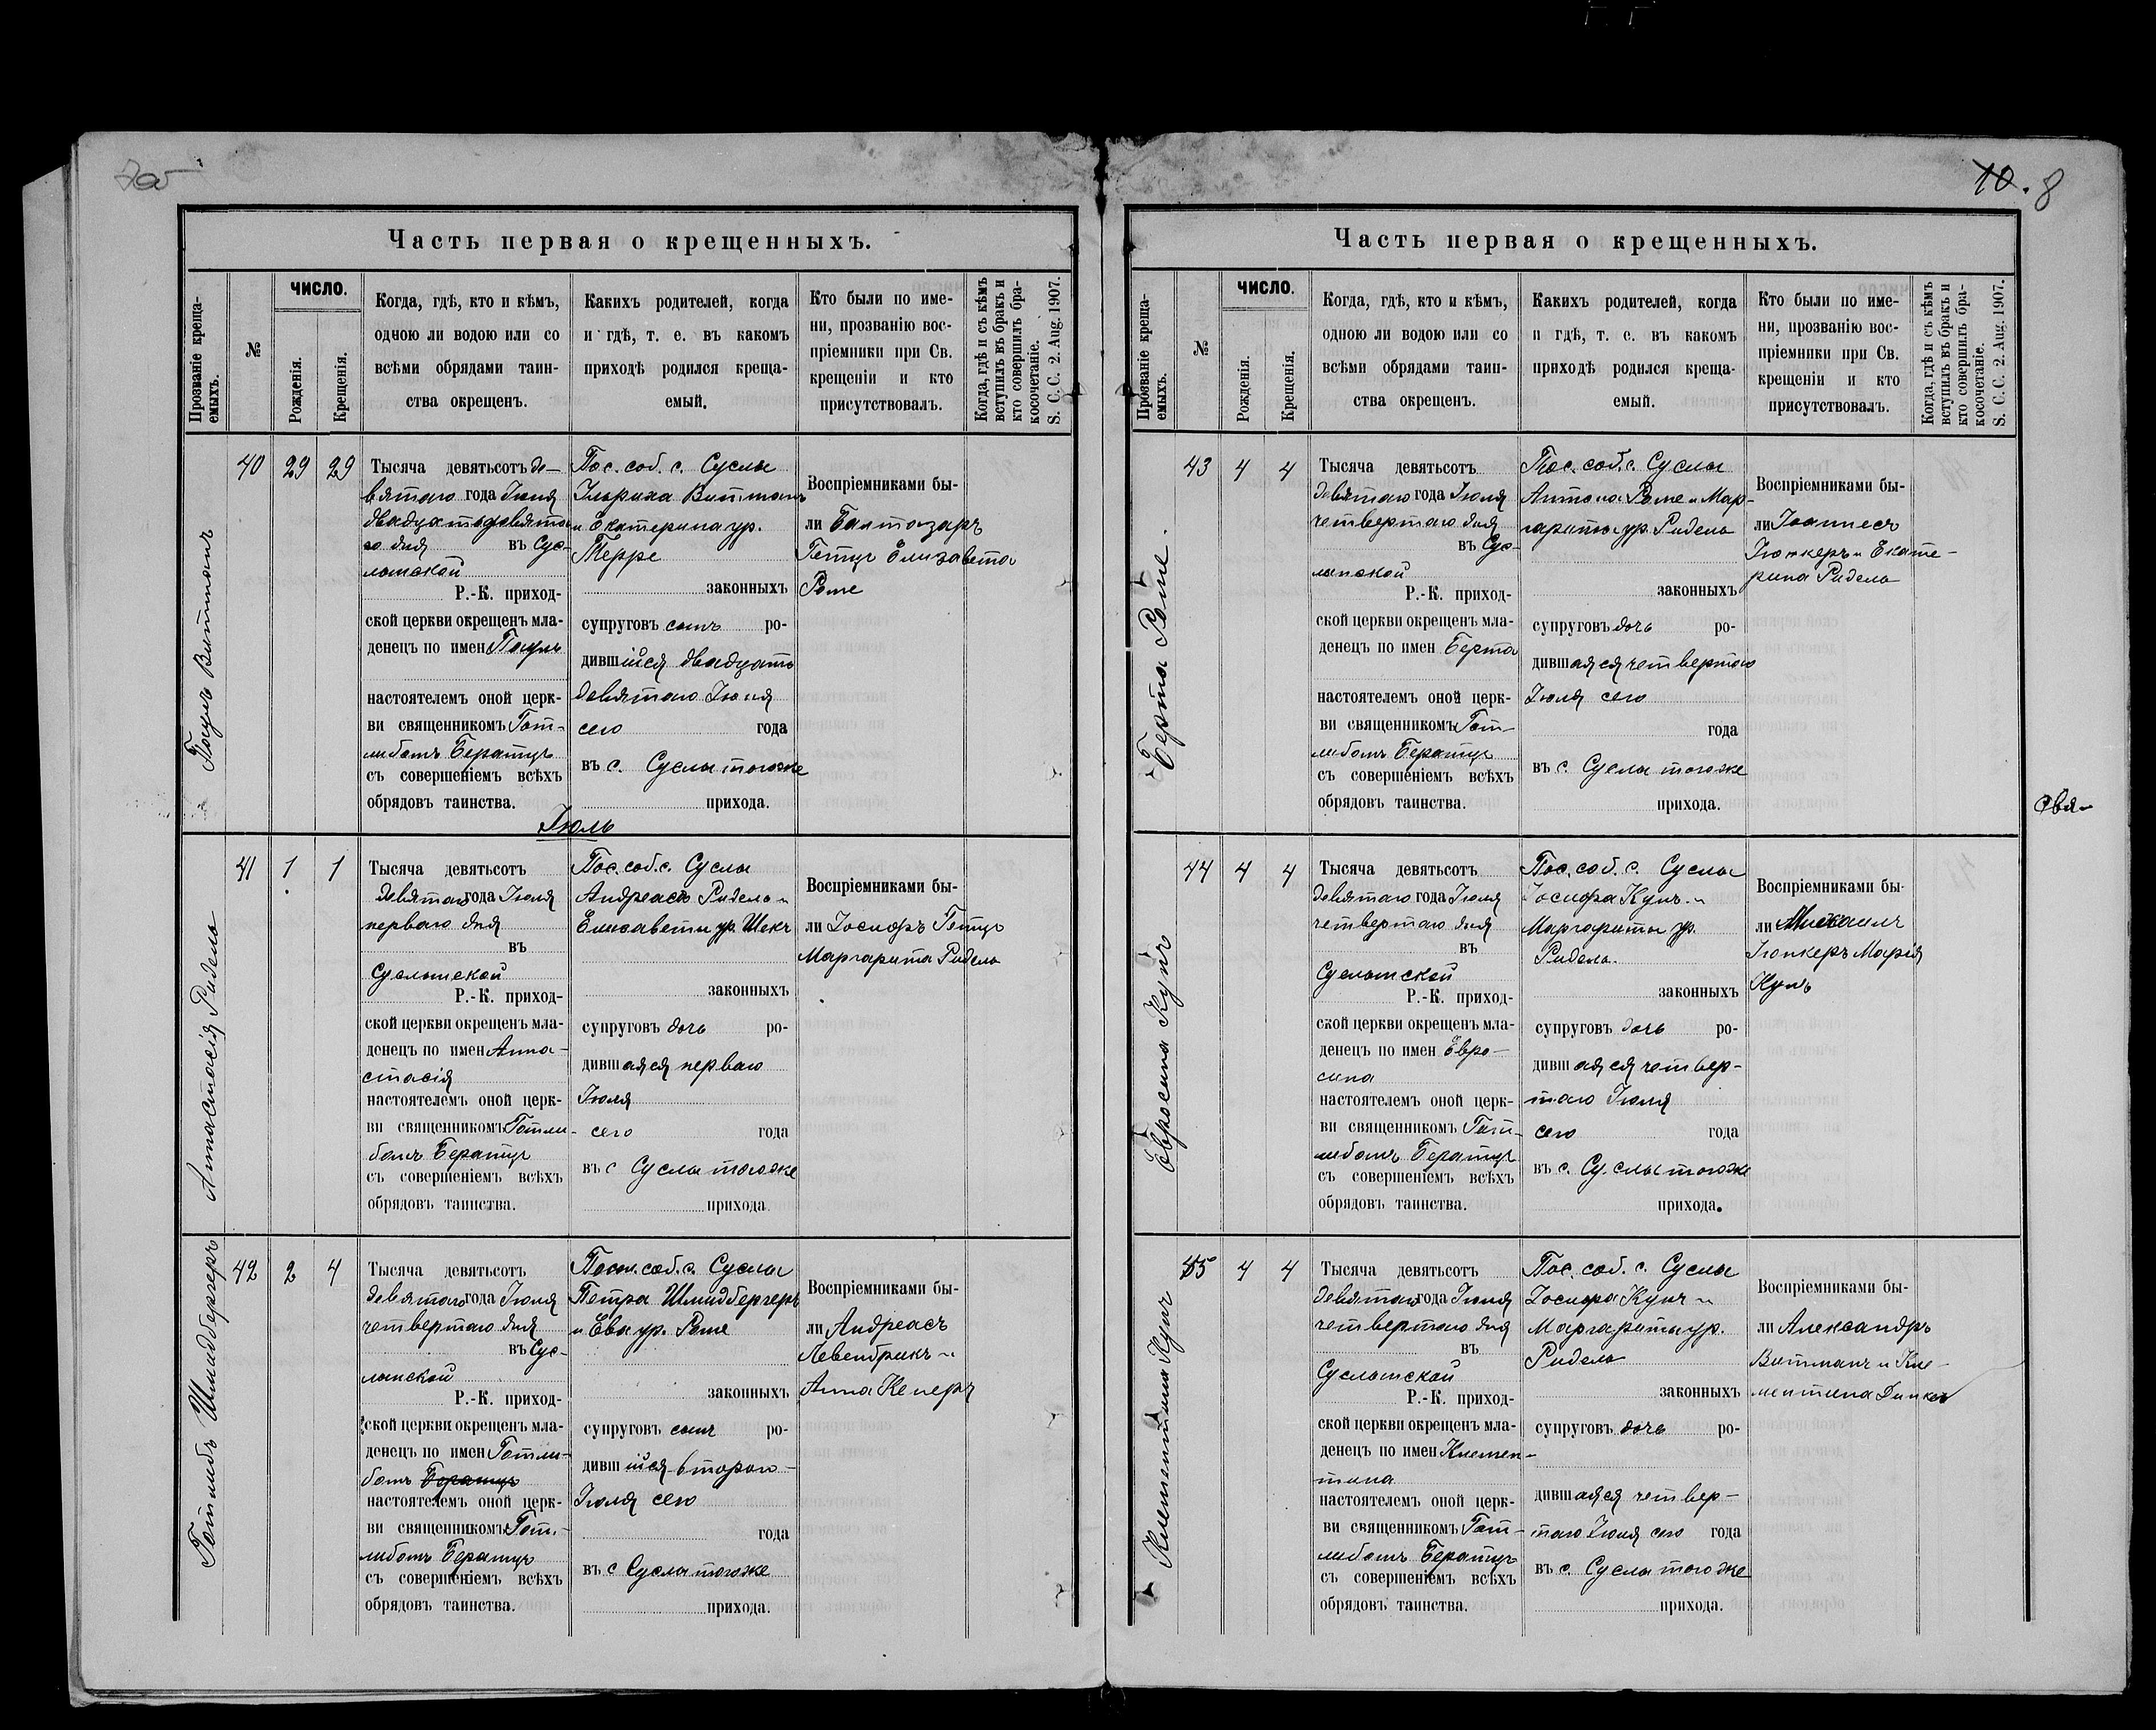 10. 8
Часть первая о крещенныхъ.
Прозваніе креща-
емыхъ.
№
ЧИСЛО.
Рожденія.
Крещенія.
Когда, гдѣ, кто и кѣмъ,
одною ли водою или со
всѣми обрядами таин-
ства окрещенъ.
Какихъ родителей, когда
и гдѣ, т. е. въ какомъ
приходѣ родился креща-
емый.
Кто были по име-
ни, прозванію вос-
пріемники при Св.
крещеніи и кто
присутствовалъ.
Когда, гдѣ и съ кѣмъ
вступилъ въ бракъ и
кто совершилъ бра-
косочетаніе.
S. C. C. 2. Aug. 1907.
Паулъ Витманъ
40 29 29
Тысяча девятьсотъ де-
вятаго года Іюня
двадцать девята-
го дня въ Сус-
лынской
Р.-К. приход-
ской церкви окрещенъ мла-
денецъ по имен Паулъ
настоятелемъ оной церк-
ви священникомъ Гот-
либомъ Бератцъ
съ совершеніемъ всѣхъ
обрядовъ таинства.
Пос. соб. с. Суслы
Ульриха Витманъ
и Екатерина ур.
Терре
законныхъ
супруговъ сынъ ро-
дившійся двадцать
девятаго Іюня
сего года
въ с. Суслы тогоже
прихода.
Воспріемниками бы-
ли Балтазаръ
Гетцъ Елизавета
Роте
Іюль
Аннастасія Ридель
41 1 1
Тысяча девятьсот
девятаго года Іюля
перваго дня
въ
Суслынской
Р.-К. приход-
ской церкви окрещенъ мла-
денецъ по имен Анна-
стасія
настоятелемъ оной церк-
ви священникомъ Готли-
бомъ Бератцъ
съ совершеніемъ всѣхъ
обрядовъ таинства.
Пос. соб. с. Суслы
Андреаса Ридель и
Елисаветы ур. Шекъ
законныхъ
супруговъ дочь ро-
дившаяся перваго
Іюля
сего года
въ с Суслы тогоже
прихода.
Воспріемниками бы-
ли Іосифъ Гетцъ
Маргарита Ридель
Готлибъ Шмидбергеръ
42 2 4
Тысяча девятьсот
девятаго года Іюля
четвертаго дня
въ Сус-
лынской
Р.-К. приход-
ской церкви окрещенъ мла-
денецъ по имен Готли-
бомъ Бератцъ
настоятелемъ оной церк-
ви священникомъ Гот-
либомъ Бератцъ
съ совершеніемъ всѣхъ
обрядовъ таинства.
соб. с. Суслы
Петра Шмидбергеръ
и Ева ур. Роте
законныхъ
супруговъ сынъ ро-
дившійся второго
Іюля сего
года
въ с Суслы тогоже
прихода.
Воспріемниками бы-
ли Андреасъ
Левенбрикъ и
Анна Келеръ
Часть первая о крещенныхъ.
Прозваніе креща-
емыхъ.
№
ЧИСЛО.
Рожденія.
Крещенія.
Когда, гдѣ, кто и кѣмъ,
одною ли водою или со
всѣми обрядами таин-
ства окрещенъ.
Какихъ родителей, когда
и гдѣ, т. е. въ какомъ
приходѣ родился креща-
емый.
Кто были по име-
ни, прозванію вос-
пріемники при Св.
крещеніи и кто
присутствовалъ.
Когда, гдѣ и съ кѣмъ
вступилъ въ бракъ и
кто совершилъ бра-
косочетаніе.
S. C. C. 2. Aug. 1907.
Берта Роте.
43 4 4
Тысяча девятьсотъ
девятаго года Іюля
четвертаго дня
въ Сус-
лынской
Р.-К. приход-
ской церкви окрещенъ мла-
денецъ по имен Берта
настоятелемъ оной церк-
ви священникомъ Гот-
либомъ Бератцъ
съ совершеніемъ всѣхъ
обрядовъ таинства.
Пос. соб. с. Суслы
Антона Роте и Мар-
гариты ур. Ридель
законныхъ
супруговъ дочь ро-
дившаяся четвертаго
Іюля сего
года
въ с. Суслы тогоже
прихода.
Воспріемниками бы-
ли Іоаннесъ
Юнкеръ и Екате-
рина Ридель
Евросина Кунъ
44 4 4
Тысяча девятьсотъ
девятаго года Іюля
четвертаго дня
въ
Суслынской
Р.-К. приход-
ской церкви окрещенъ мла-
денецъ по имен Евро-
сина
настоятелемъ оной церк-
ви священникомъ Гот-
либомъ Бератцъ
съ совершеніемъ всѣхъ
обрядовъ таинства.
Пос. соб. с. Суслы
Іосифа Кунъ и
Маргариты ур.
Ридель.
законныхъ
супруговъ дочь ро-
дившаяся четвер-
таго Іюля
сего года
въ с. Суслы тогоже
прихода.
Воспріемниками бы-
ли Михаилъ
Юнкеръ Марія
Кунъ
двя-
Клементина Кунъ
45 4 4
Тысяча девятьсотъ
девятаго года Іюля
четвертаго дня
въ
Суслынской
Р.-К. приход-
ской церкви окрещенъ мла-
денецъ по имен Клемен-
тина
настоятелемъ оной церк-
ви священникомъ Гот-
либомъ Бератцъ
съ совершеніемъ всѣхъ
обрядовъ таинства.
Пос. соб. с. Суслы
Іосифа Кунъ и
Маргариты ур.
Ридель
законныхъ
супруговъ дочь ро-
дившаяся четвер-
таго Іюля сего года
въ с. Суслы того же
прихода.
Воспріемниками бы-
ли Александръ
Витманъ и Кле-
ментина Динкель